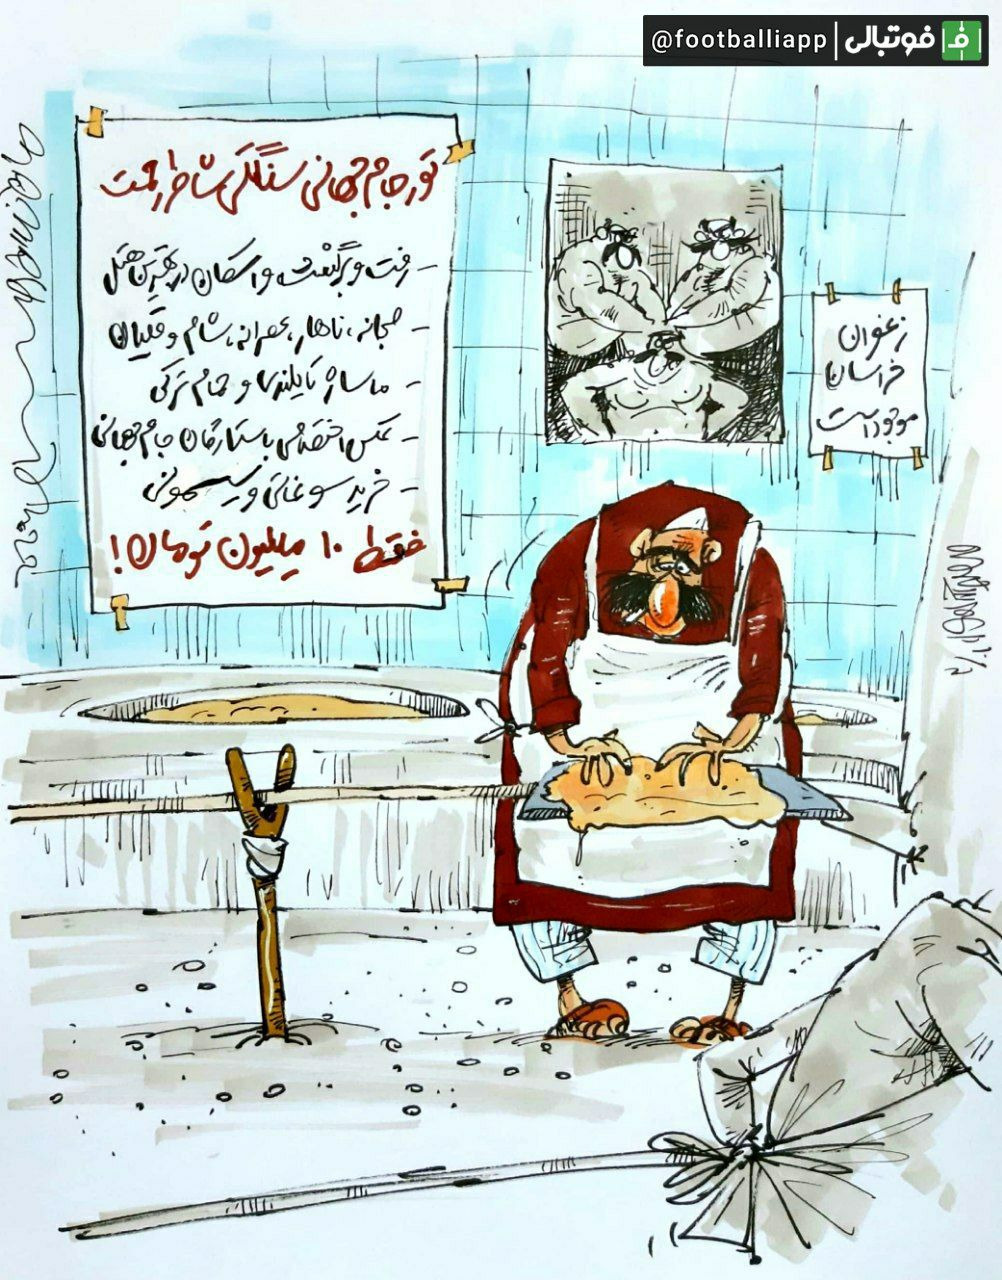 @footballiapp | فوتبالی
تور جام جهانی سنگکی شاطر رحمت
- رفت و برگشت و اسکان در بهترین هتل
- صبحانه، ناهار، عصرانه، شام و قلیان
- ماساژ تایلندی و حمام ترکی
- عکس اختصاصی با ستارگان جام جهانی
- خرید سوغاتی و سیسمونی
فقط ۱۰ میلیون تومان!
زعفران
خراسان
موجود است